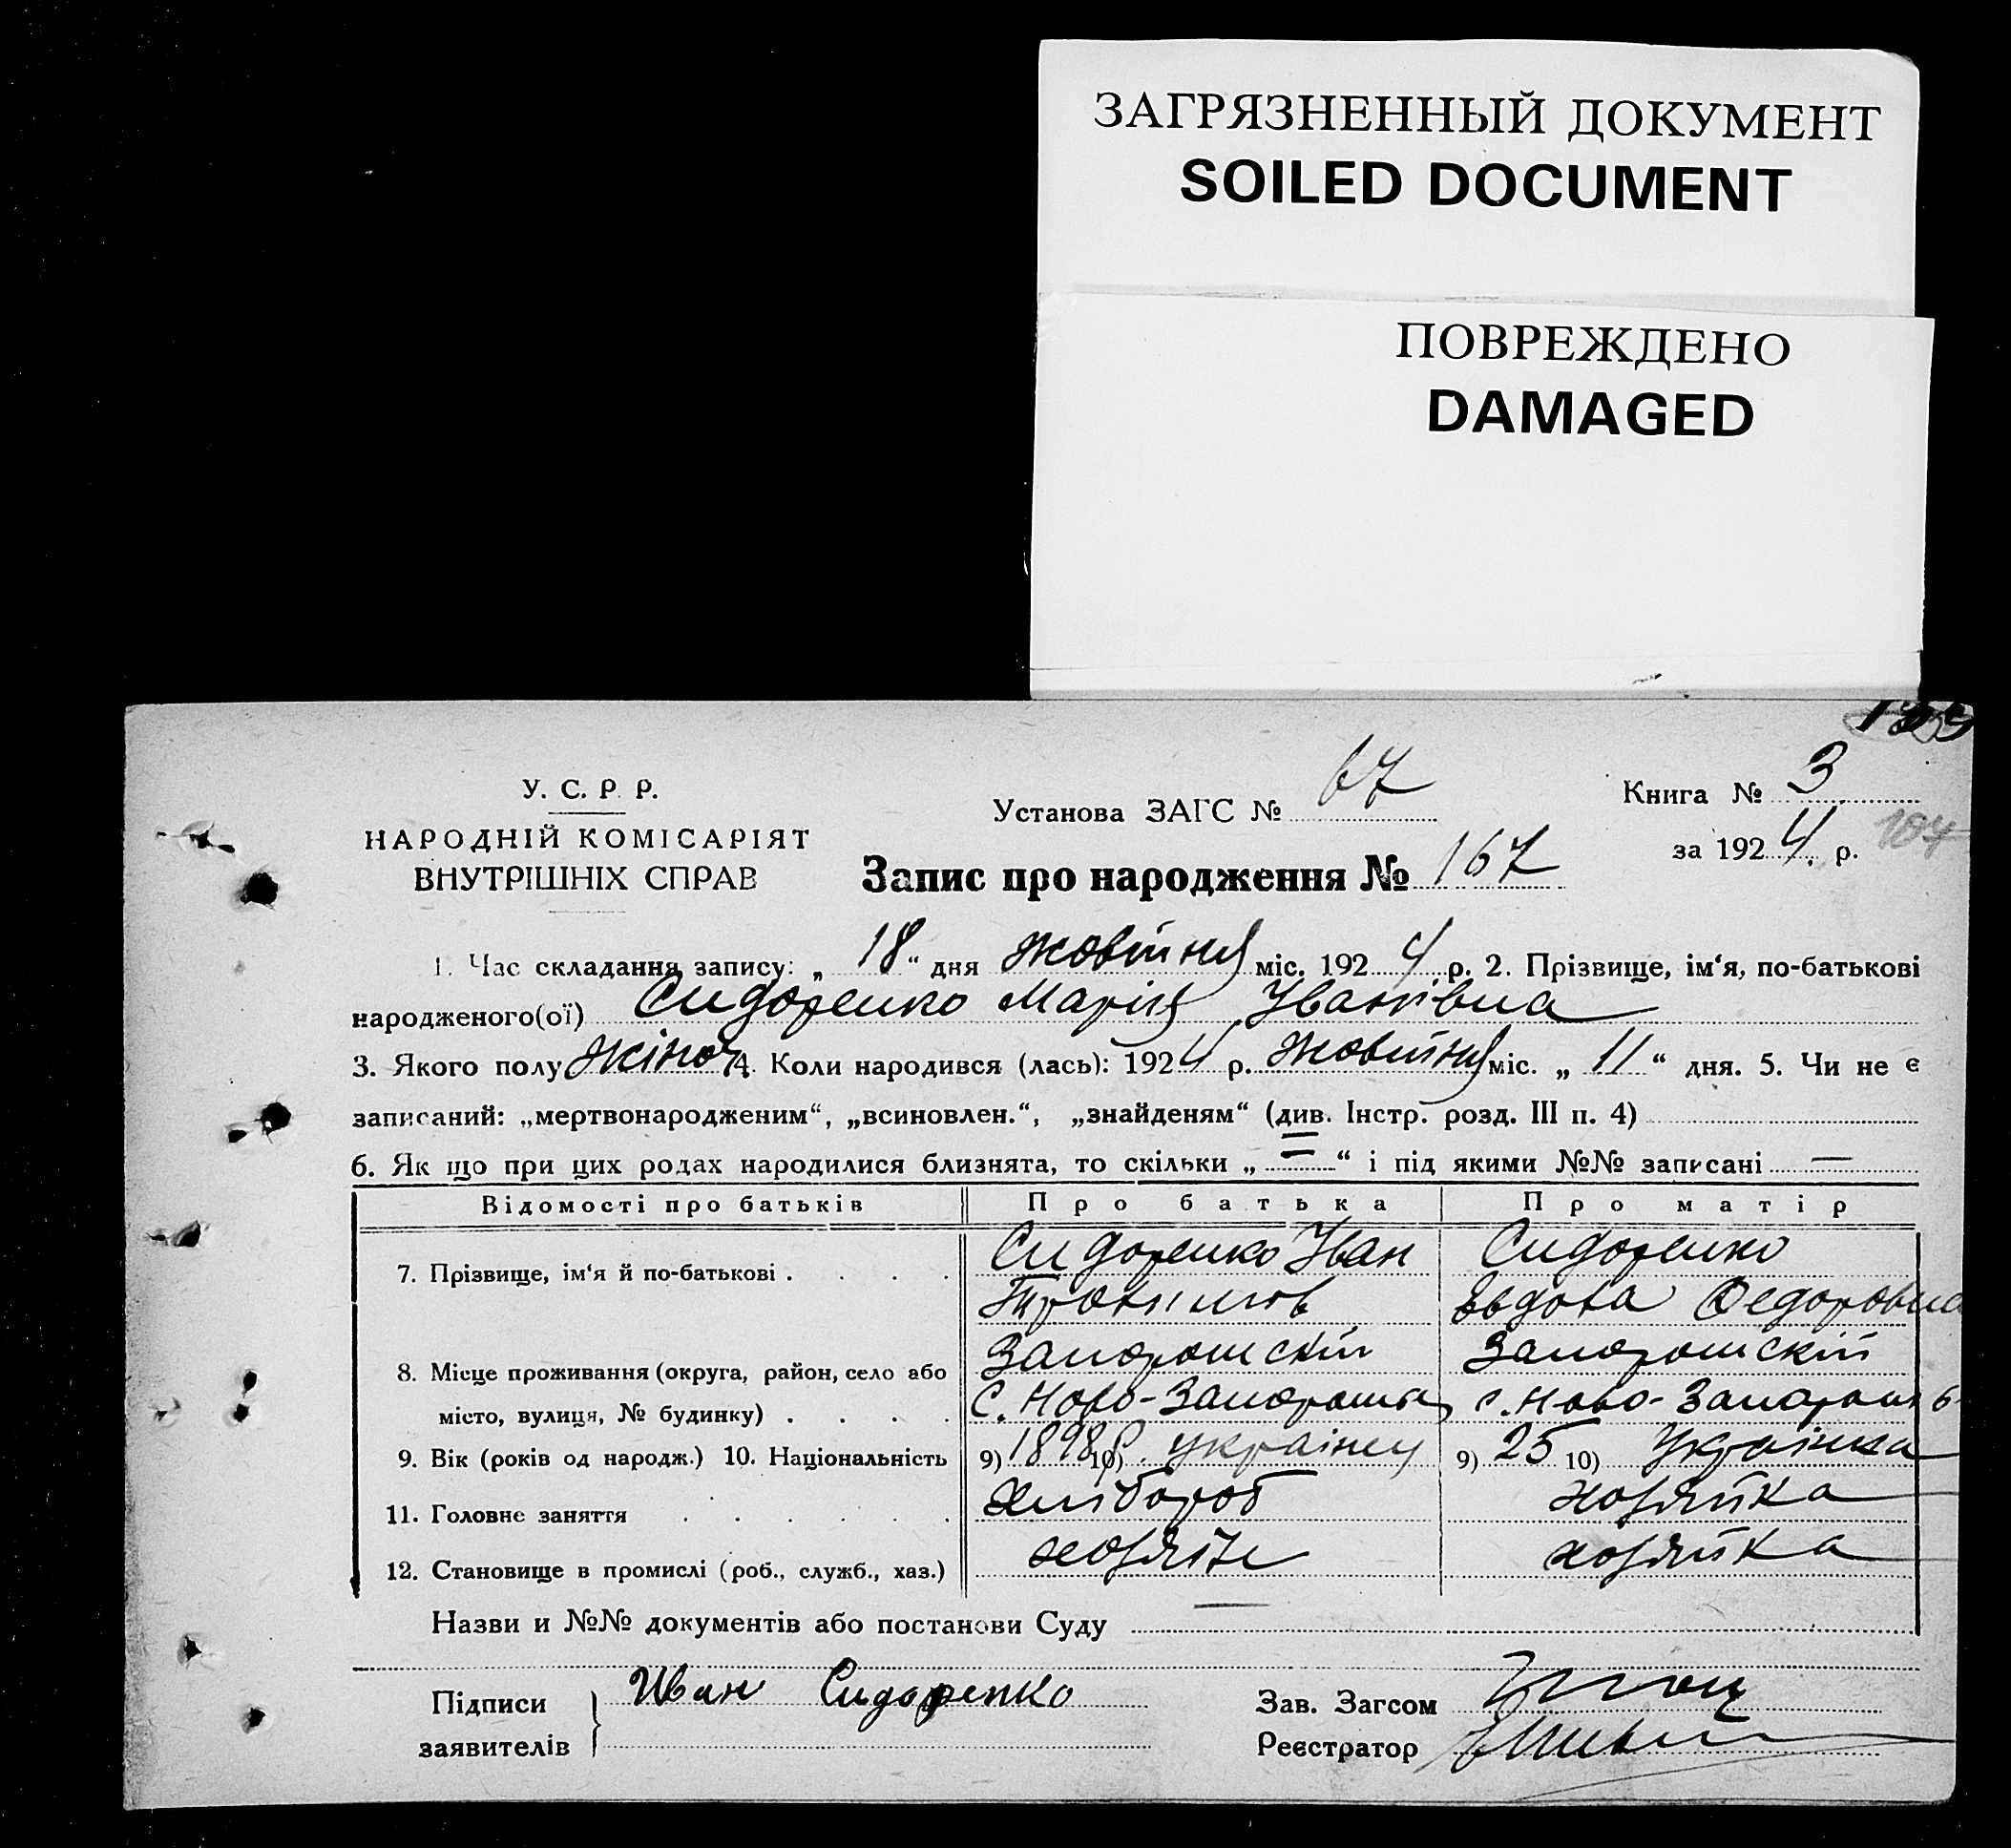 ЗАГРЯЗНЕННЫЙ ДОКУМЕНТ
SOILED DOCUMENT
ПОВРЕЖДЕНО
DAMAGED
У. С. Р. Р.
НАРОДНІЙ КОМІСАРІЯТ
ВНУТРІШНІХ СПРАВ
Установа ЗАГС № 67
Книга № 3
за 1924 р. 107
Запис про народження № 167
1. Час складання запису: „ 18 “ дня жовтня міс. 1924 р. 2. Прізвище, ім‘я, по-батькові
народженого(ої) Сидоренко Марія Іванівна
3. Якого полу жіноч 4. Коли народився (лась): 1924 р. жовтня міс. „ 11 “ дня. 5. Чи не є
записаний: „мертвонародженим“, „всиновлен.“, „знайденям“ (див. Інстр. розд. III п. 4)
6. Як що при цих родах народилися близнята, то скільки „ — “ і під якими №№ записані —
Відомості про батьків Про батька Про матір
7. Прізвище, ім‘я й по-батькові . . . . Сидоренко Іван Сидоренко
Трохимов Евдоха Федоровна
Запорошскій Запорошскій
8. Місце проживання (округа, район, село або
місто, вулиця, № будинку) . . . . С. Ново-Запорошя с. Ново-Запорошя
9. Вік (років од народж.) 10. Національність 9) 1898 р. 10) українец 9) 25 10) Українка
11. Головне заняття . . . . . . Хлібороб хозяйка
12. Становище в промислі (роб., служб., хаз.) хозяїн хозяйка
Назви и №№ документів або постанови Суду —
Підписи
заявителів
Иван Сидоренко
Зав. Загсом
Реєстратор